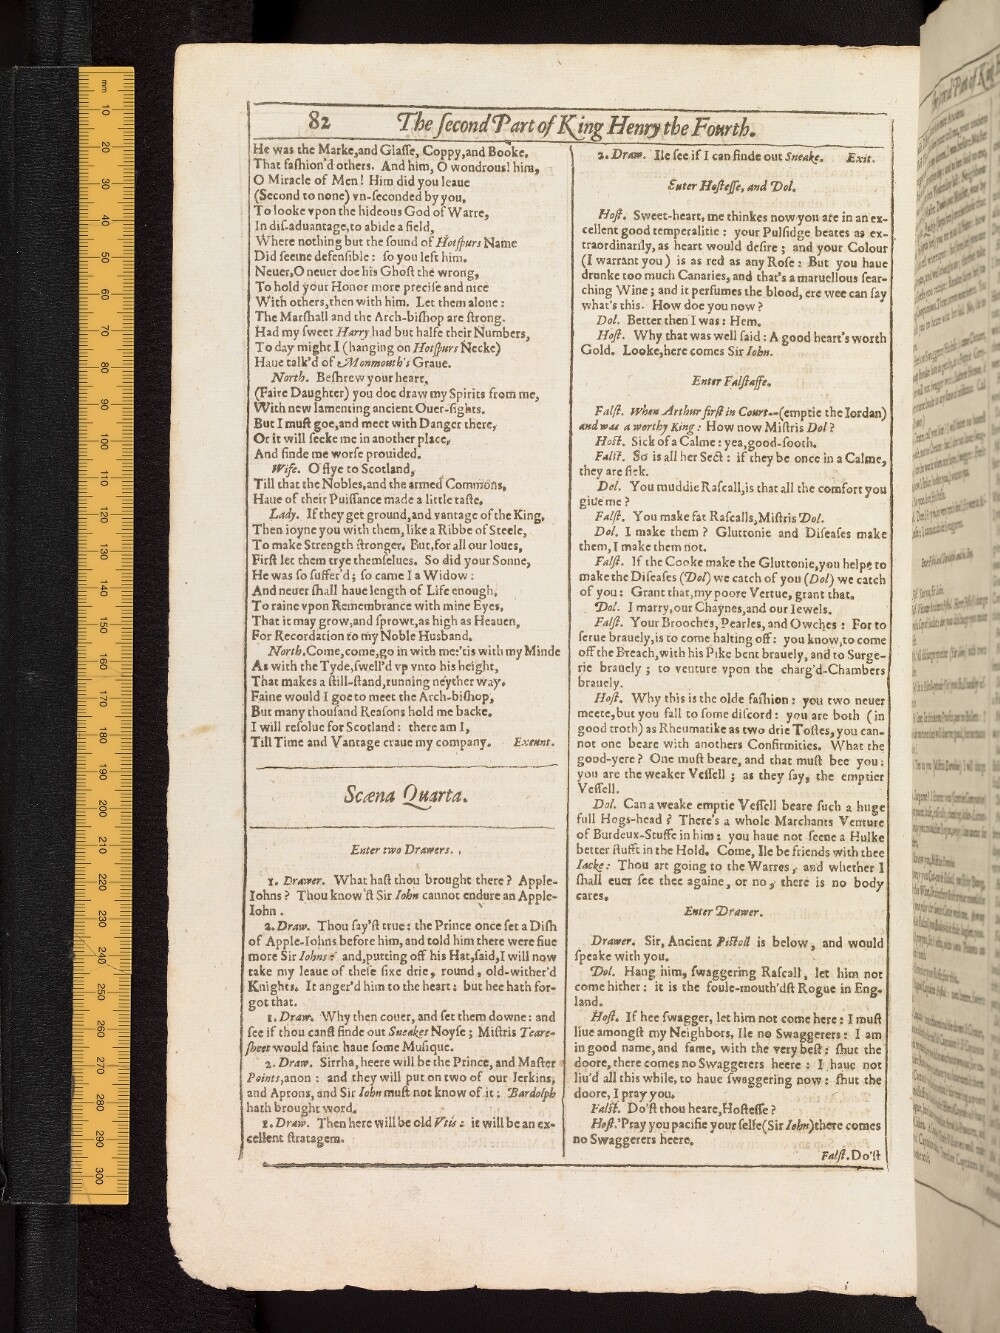 82 The second Part of King Henry the Fourth.
He was the Marke,and Glasse, Coppy,and Booke,
That fashion'd others. And him, O wondrous! him,
O Miracle of Men! Him did you leaue
(Second to none) vn-seconded by you,
To looke vpon the hideous God of Warre,
In dis-aduantage,to abide a field,
Where nothing but the sound of Hotspurs Name
Did seeme defensible: so you left him.
Neuer,O neuer doe his Ghost the wrong,
To hold your Honor more precise and nice
With others,then with him. Let them alone:
The Marshall and the Arch-bishop are strong.
Had my sweet Harry had but halfe their Numbers,
To day might I (hanging on Hotspurs Necke)
Haue talk'd of Monmouth's Graue.
North. Beshrew your heart,
(Faire Daughter) you doe draw my Spirits from me,
With new lamenting ancient Ouer-sights.
But I must goe,and meet with Danger there,
Or it will seeke me in another place,
And finde me worse prouided.
Wife. O flye to Scotland,
Till that the Nobles,and the armed Commons,
Haue of their Puissance made a little taste.
Lady. If they get ground,and vantage of the King,
Then ioyne you with them,like a Ribbe of Steele,
To make Strength stronger. But,for all our loues,
First let them trye themselues. So did your Sonne,
He was so suffer'd; so came I a Widow:
And neuer shall haue length of Life enough,
To raine vpon Remembrance with mine Eyes,
That it may grow,and sprowt,as high as Heauen,
For Recordation to my Noble Husband.
North.Come,come,go in with me:'tis with my Minde
As with the Tyde,swell'd vp vnto his height,
That makes a still-stand,running neyther way.
Faine would I goe to meet the Arch-bishop,
But many thousand Reasons hold me backe.
I will resolue for Scotland: there am I,
Till Time and Vantage craue my company. Exeunt.
Scæna Quarta.
Enter two Drawers.
1. Drawer. What hast thou brought there? Apple-
Iohns? Thou know'st Sir Iohn cannot endure an Apple-
Iohn.
2. Draw. Thou say'st true: the Prince once set a Dish
of Apple-Iohns before him, and told him there were fiue
more Sir Iohns: and,putting off his Hat,said,I will now
take my leaue of these sixe drie, round, old-wither'd
Knights. It anger'd him to the heart: but hee hath for-
got that.
1. Draw. Why then couer, and set them downe: and
see if thou canst finde out Sneakes Noyse; Mistris Teare-
sheet would faine haue some Musique.
2. Draw. Sirrha, heere will be the Prince, and Master
Points,anon: and they will put on two of our Ierkins,
and Aprons, and Sir Iohn must not know of it: Bardolph
hath brought word.
1. Draw. Then here will be old Vtis: it will be an ex-
cellent stratagem.
2. Draw. Ile see if I can finde out Sneake. Exit.
Enter Hostesse, and Dol.
Host. Sweet-heart, me thinkes now you are in an ex-
cellent good temperalitie: your Pulsidge beates as ex-
traordinarily, as heart would desire; and your Colour
(I warrant you) is as red as any Rose: But you haue
drunke too much Canaries, and that's a maruellous sear-
ching Wine; and it perfumes the blood, ere wee can say
what's this. How doe you now?
Dol. Better then I was: Hem.
Host. Why that was well said: A good heart's worth
Gold. Looke,here comes Sir Iohn.
Enter Falstaffe.
Falst. When Arthur first in Court--(emptie the Iordan)
and was a worthy King: How now Mistris Dol?
Host. Sick of a Calme: yea,good-sooth.
Falst. So is all her Sect: if they be once in a Calme,
they are sick.
Dol. You muddie Rascall,is that all the comfort you
giue me?
Falst. You make fat Rascalls,Mistris Dol.
Dol. I make them? Gluttonie and Diseases make
them,I make them not.
Falst. If the Cooke make the Gluttonie,you helpe to
make the Diseases (Dol) we catch of you (Dol) we catch
of you: Grant that,my poore Vertue, grant that.
Dol. I marry,our Chaynes,and our Iewels.
Falst. Your Brooches, Pearles, and Owches: For to
serue brauely,is to come halting off: you know,to come
off the Breach,with his Pike bent brauely, and to Surge-
rie brauely; to venture vpon the charg'd-Chambers
brauely.
Host. Why this is the olde fashion: you two neuer
meete,but you fall to some discord: you are both (in
good troth) as Rheumatike as two drie Tostes,you can-
not one beare with anothers Confirmities. What the
good-yere? One must beare, and that must bee you:
you are the weaker Vessell; as they say, the emptier
Vessell.
Dol. Can a weake emptie Vessell beare such a huge
full Hogs-head? There's a whole Marchants Venture
of Burdeux-Stuffe in him: you haue not seene a Hulke
better stufft in the Hold. Come, Ile be friends with thee
Iacke: Thou art going to the Warres, and whether I
shall euer see thee againe, or no, there is no body
cares.
Enter Drawer.
Drawer. Sir, Ancient Pistoll is below, and would
speake with you.
Dol. Hang him, swaggering Rascall, let him not
come hither: it is the foule-mouth'dst Rogue in Eng-
land.
Host. If hee swagger, let him not come here: I must
liue amongst my Neighbors, Ile no Swaggerers: I am
in good name, and fame, with the very best: shut the
doore, there comes no Swaggerers heere: I haue not
liu'd all this while, to haue swaggering now: shut the
doore, I pray you.
Falst. Do'st thou heare,Hostesse?
Host.'Pray you pacifie your selfe(Sir Iohn)there comes
no Swaggerers heere.
Falst.Do'st
mm
10
20
30
40
50
60
70
80
90
100
110
120
130
140
150
160
170
180
190
200
210
220
230
240
250
260
270
280
290
300